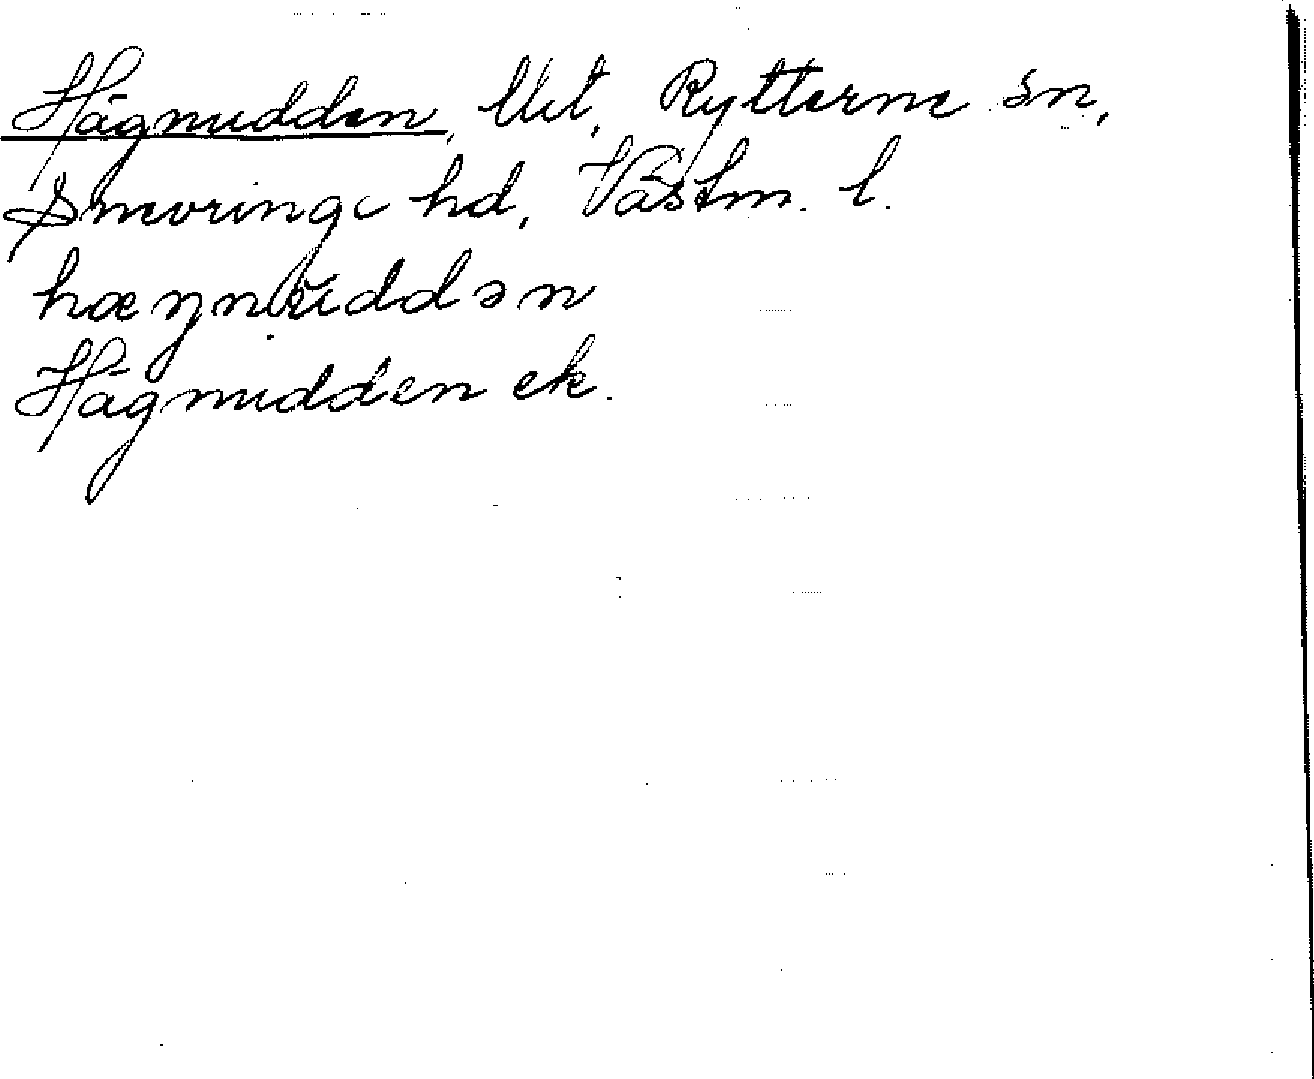 Hägnudden, Utt, Rytterne sn,
Snevringe hd, Västm. l.
hæŋnŭddən
Hägnudden ek.